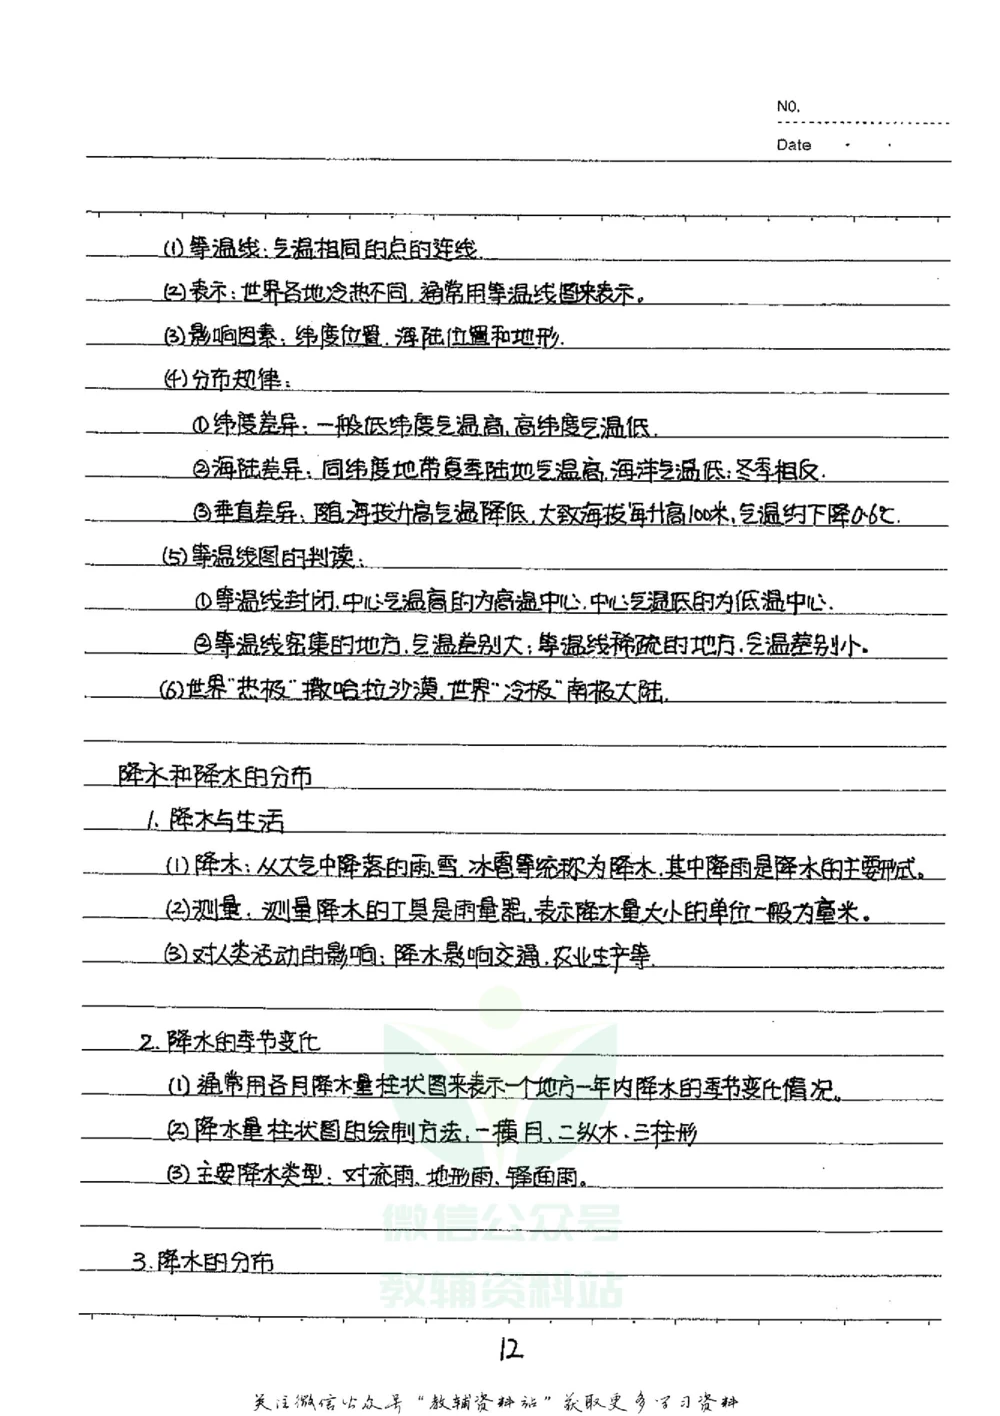 NO.
Date
(1)等温线:气温相同的点的连线.
(2)表示:世界各地冷热不同,通常用等温线图来表示。
(3)影响因素:纬度位置、海陆位置和地形.
(4)分布规律:
①纬度差异:一般低纬度气温高,高纬度气温低.
②海陆差异:同纬度地带夏季陆地气温高,海洋气温低;冬季相反.
③垂直差异:随海拔升高气温降低,大致海拔每升高100米,气温约下降0.6℃.
(5)等温线图的判读:
①等温线封闭,中心气温高的为高温中心,中心气温低的为低温中心.
②等温线密集的地方,气温差别大;等温线稀疏的地方,气温差别小。
(6)世界"热极"撒哈拉沙漠,世界"冷极"南极大陆.
降水和降水的分布
1. 降水与生活
(1)降水:从大气中降落的雨、雪、冰雹等统称为降水,其中降雨是降水的主要形式。
(2)测量:测量降水的工具是雨量器,表示降水量大小的单位一般为毫米。
(3)对人类活动的影响:降水影响交通、农业生产等.
2. 降水的季节变化
(1)通常用各月降水量柱状图来表示一个地方一年内降水的季节变化情况。
(2)降水量柱状图的绘制方法:一横月、二纵水、三柱形
(3)主要降水类型:对流雨、地形雨、锋面雨。
微信公众号
3.降水的分布
教辅资料站
12
关注微信公众号"教辅资料站"获取更多学习资料